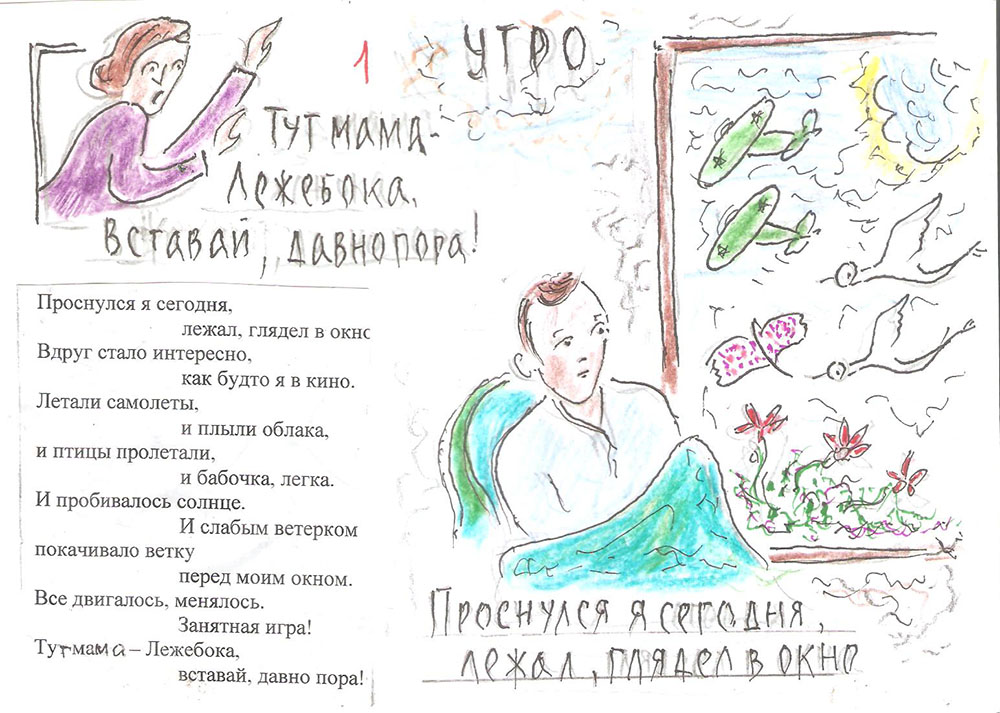 1
УТРО
Тут мама-
Лежебока,
вставай, давно пора!
Проснулся я сегодня,
лежал, глядел в окно
Вдруг стало интересно,
как будто я в кино.
Летали самолеты,
и плыли облака,
и птицы пролетали,
и бабочка, легка.
И пробивалось солнце.
И слабым ветерком
покачивало ветку
перед моим окном.
Все двигалось, менялось.
Занятная игра!
Тут мама – Лежебока,
вставай, давно пора!
Проснулся я сегодня,
лежал, глядел в окно